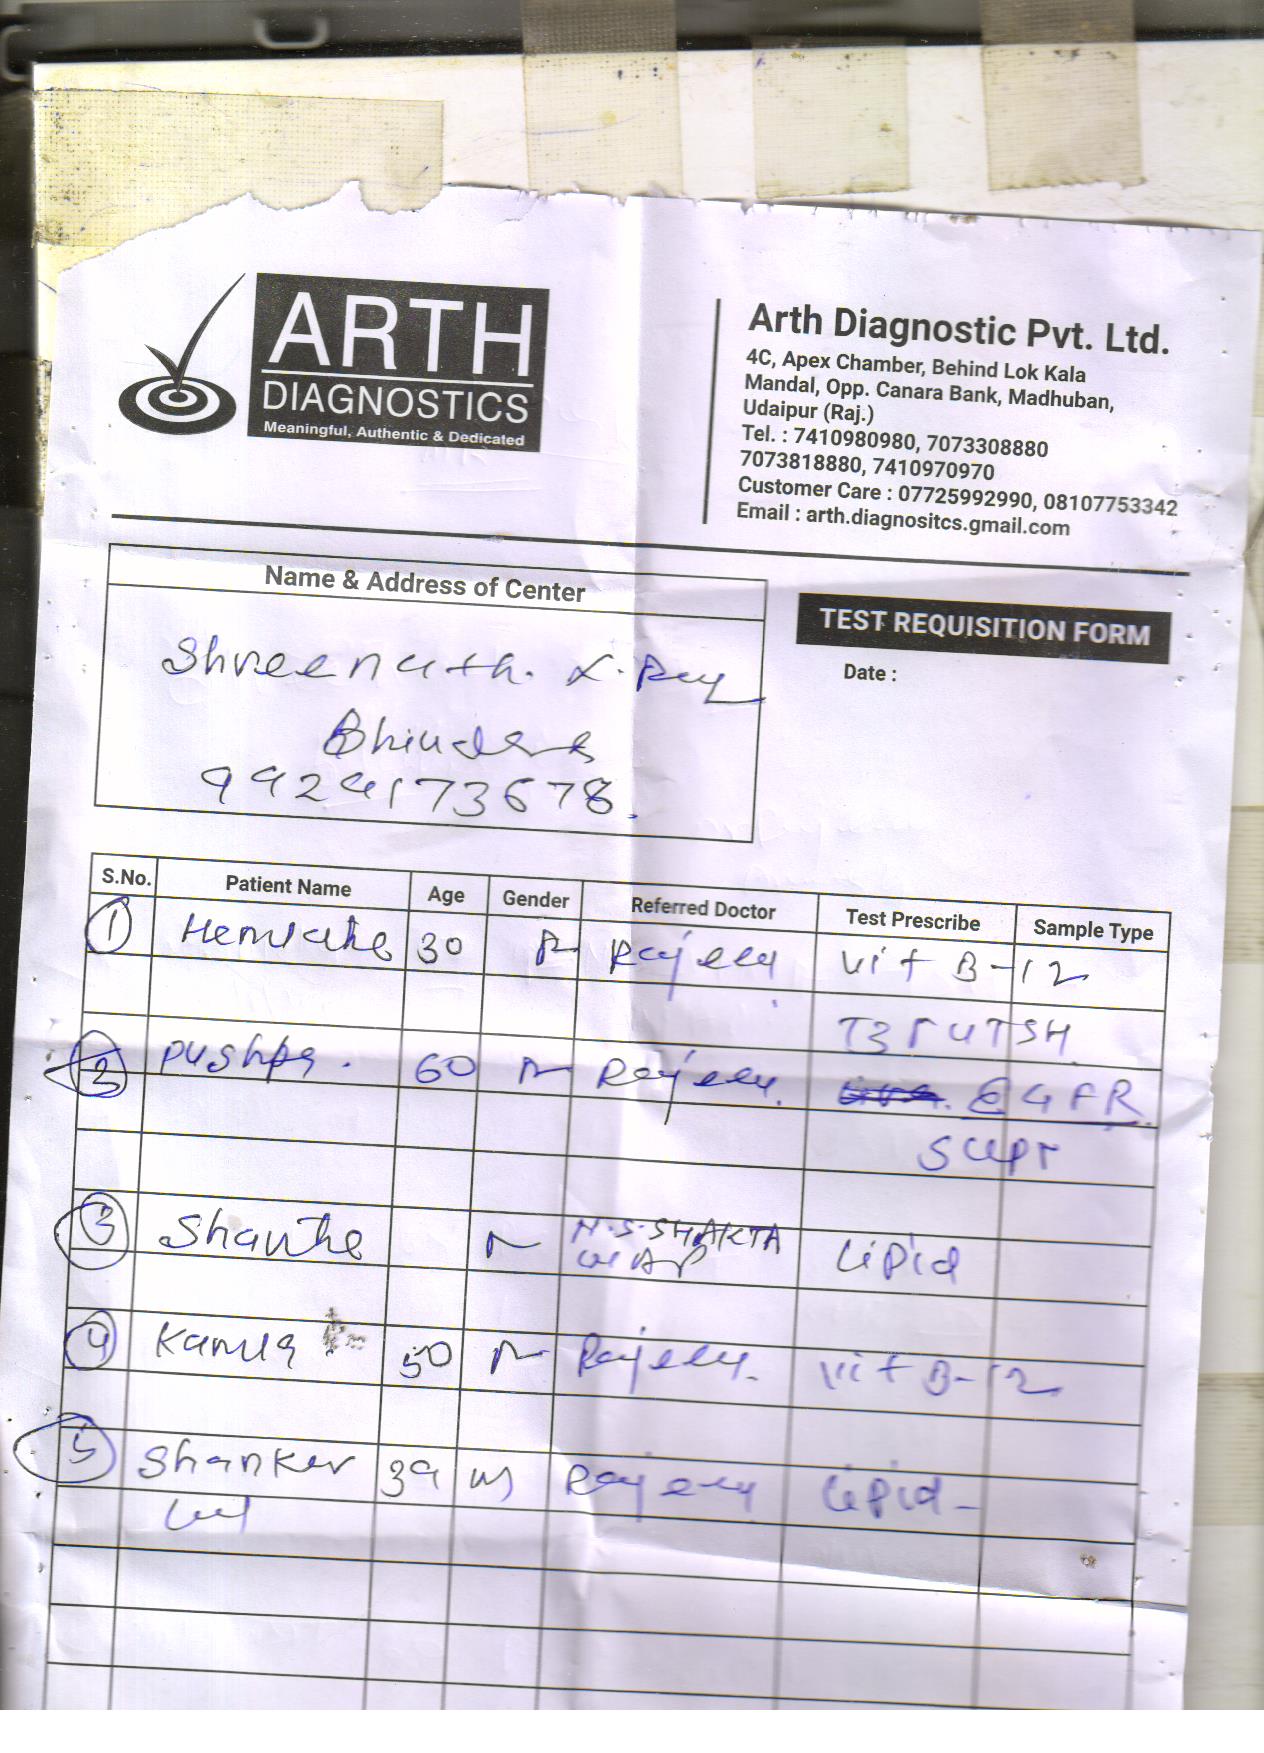 ARTH
DIAGNOSTICS
Meaningful, Authentic & Dedicated
Arth Diagnostic Pvt. Ltd.
4C, Apex Chamber, Behind Lok Kala
Mandal, Opp. Canara Bank, Madhuban,
Udaipur (Raj.)
Tel. : 7410980980, 7073308880
7073818880, 7410970970
Customer Care : 07725992990, 08107753342
Email : arth.diagnositcs.gmail.com
Name & Address of Center
Shreenath. X-Ray
Bhinder
TEST REQUISITION FORM
Date :
S.No. Patient Name Age Gender Referred Doctor Test Prescribe Sample Type
1 30 Vit B-12
T3 T4 TSH
2 Pushpa. 60 EGFR
SGPT
3 N.S. SHAKTA Lipid
4 50 Vit B-12
5 Shanker 39 Lipid -